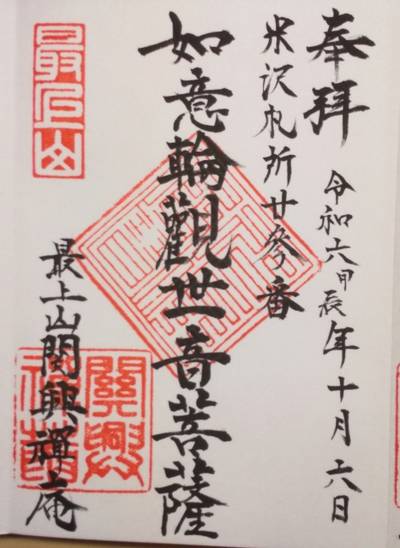 奉拝
令和六甲辰年十月六日
米沢札所廿參番
如意輪觀世音菩薩
最上山
最上山関興禪庵
關興